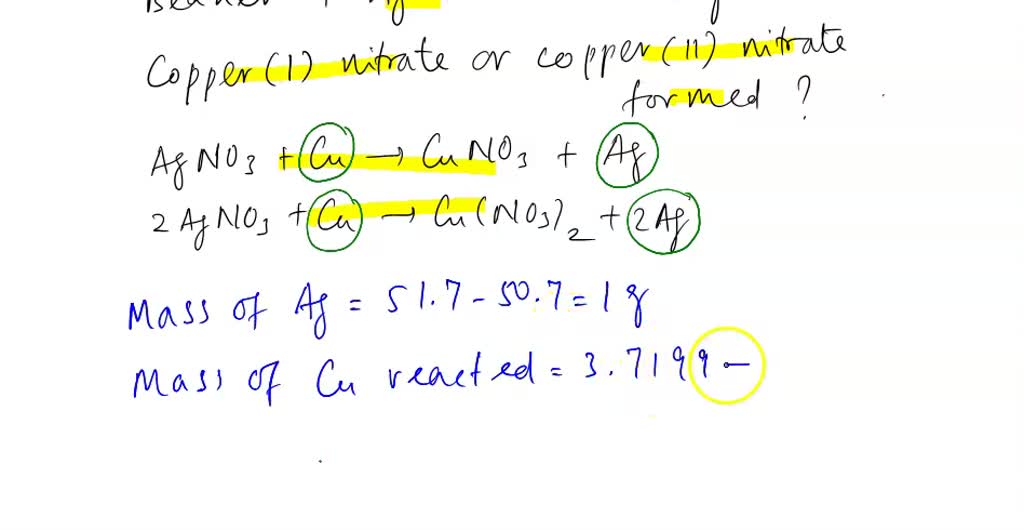 Copper(I) nitrate or copper(II) nitrate
formed ?
AgNO3 + Cu → CuNO3 + Ag
2 AgNO3 + Cu → Cu(NO3)2 + 2Ag
Mass of Ag = 51.7 - 50.7 = 1 g
Mass of Cu reacted = 3.7199 -